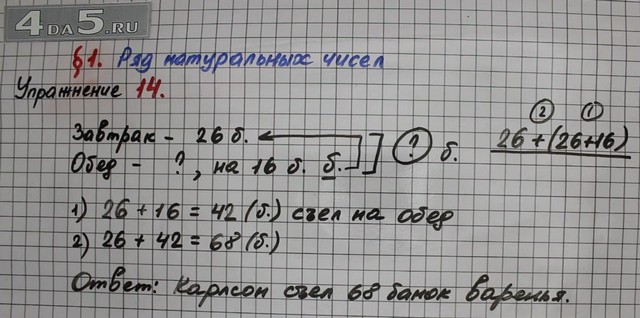 4DA5.RU
§1. Ряд натуральных чисел
Упражнение 14.
② ①
Завтрак - 26 б. 26 + (26+16)
Обед - ?, на 16 б. б. ? б.
1) 26 + 16 = 42 (б.) съел на обед
2) 26 + 42 = 68 (б.)
Ответ: Карлсон съел 68 банок варенья.